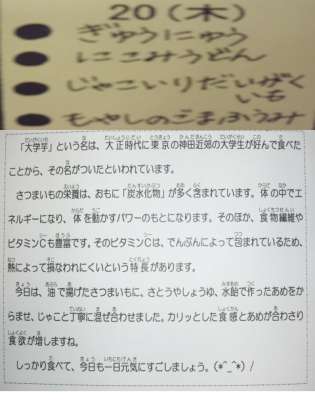 20(木)
ぎゅうにゅう
にこみうどん
じゃこいりだいがく
いも
もやしのごまふうみ
「大学芋」という名は、大正時代に東京の神田近郊の大学生が好んで食べた
ことから、その名がついたといわれています。
さつまいもの栄養は、おもに「炭水化物」が多く含まれています。体の中でエ
ネルギーになり、体を動かすパワーのもとになります。そのほか、食物繊維や
ビタミンCも豊富です。そのビタミンCは、でんぷんによって包まれているため、
熱によって損なわれにくいという特長があります。
今日は、油で揚げたさつまいもに、さとうやしょうゆ、水飴で作ったあめをか
らませ、じゃこと丁寧に混ぜ合わせました。カリッとした食感とあめが合わさり
食欲が増しますね。
しっかり食べて、今日も一日元気にすごしましょう。(*^_^*)/